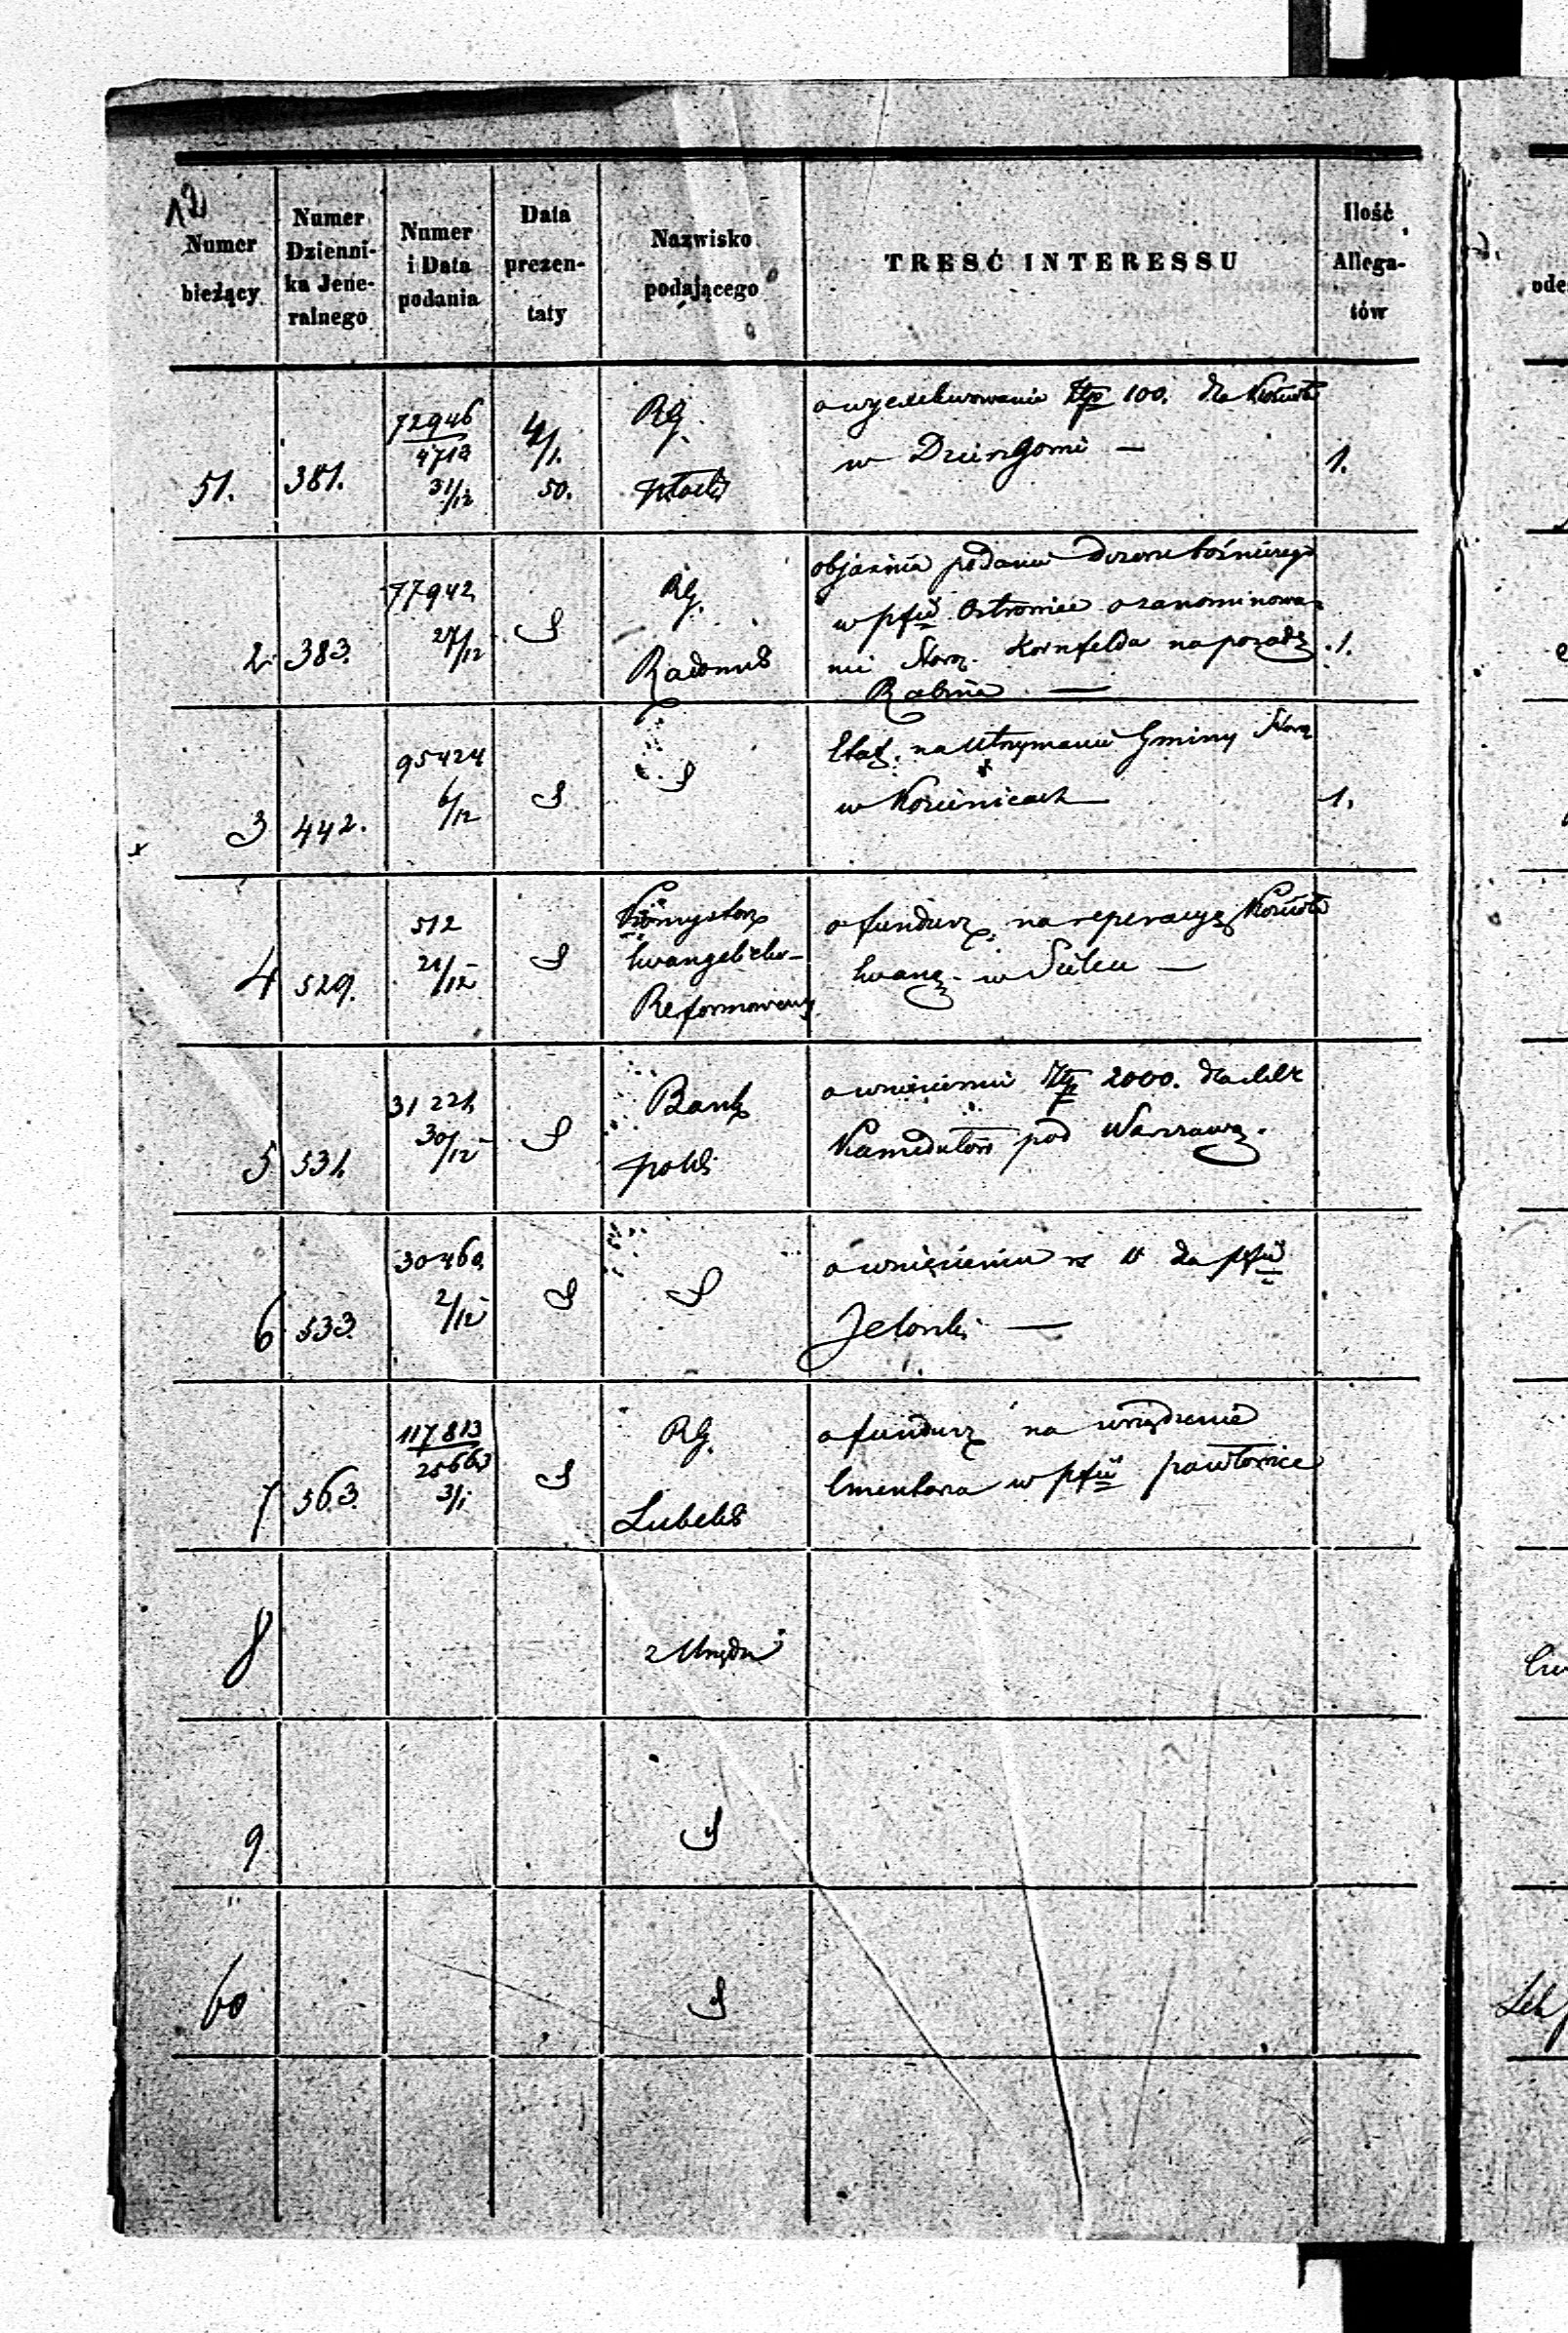 12
Numer bieżący
Numer Dzienni- ka Jene- ralnego
Numer i Data podania
Data prezen- taty
Nazwisko podającego
TRESĆ INTERESSU
Ilość Allega- tów
51. 381. 72946 4712 31/12 4/1. 50. RG. Płocki
o wyexekwowanie Złp 100. dla Kościoła
w
1.
2. 383. 77942 27/12 RG. Radoms
objaśnia podanie Dozoru bożniczego
w Ostrowiec o zanominowa-
nie Star. Kornfelda na posadę
Rabina —
1.
3 442. 95424 6/12
Etat. na utrzymanie Gminy Star
w Kozienicach
1.
4 529. 512 21/12 Konsystorz
Ewangelicko-
Reformowany
o fundusz na reperacyę Kościoła
Ewang. w —
5 531. 31221. 30/12 Bank
Polski
o wniesienie Złp 2000. dla
Kamedułów pod Warszawą.
6 533. 30460. 2/12
o wniesienie
Jelonki —
7 563. 117813 25663 3/1 RG.
Lubels
o fundusz na urządzenie
Cmentarza w Pawłowice
8 z Urzędu
9
60